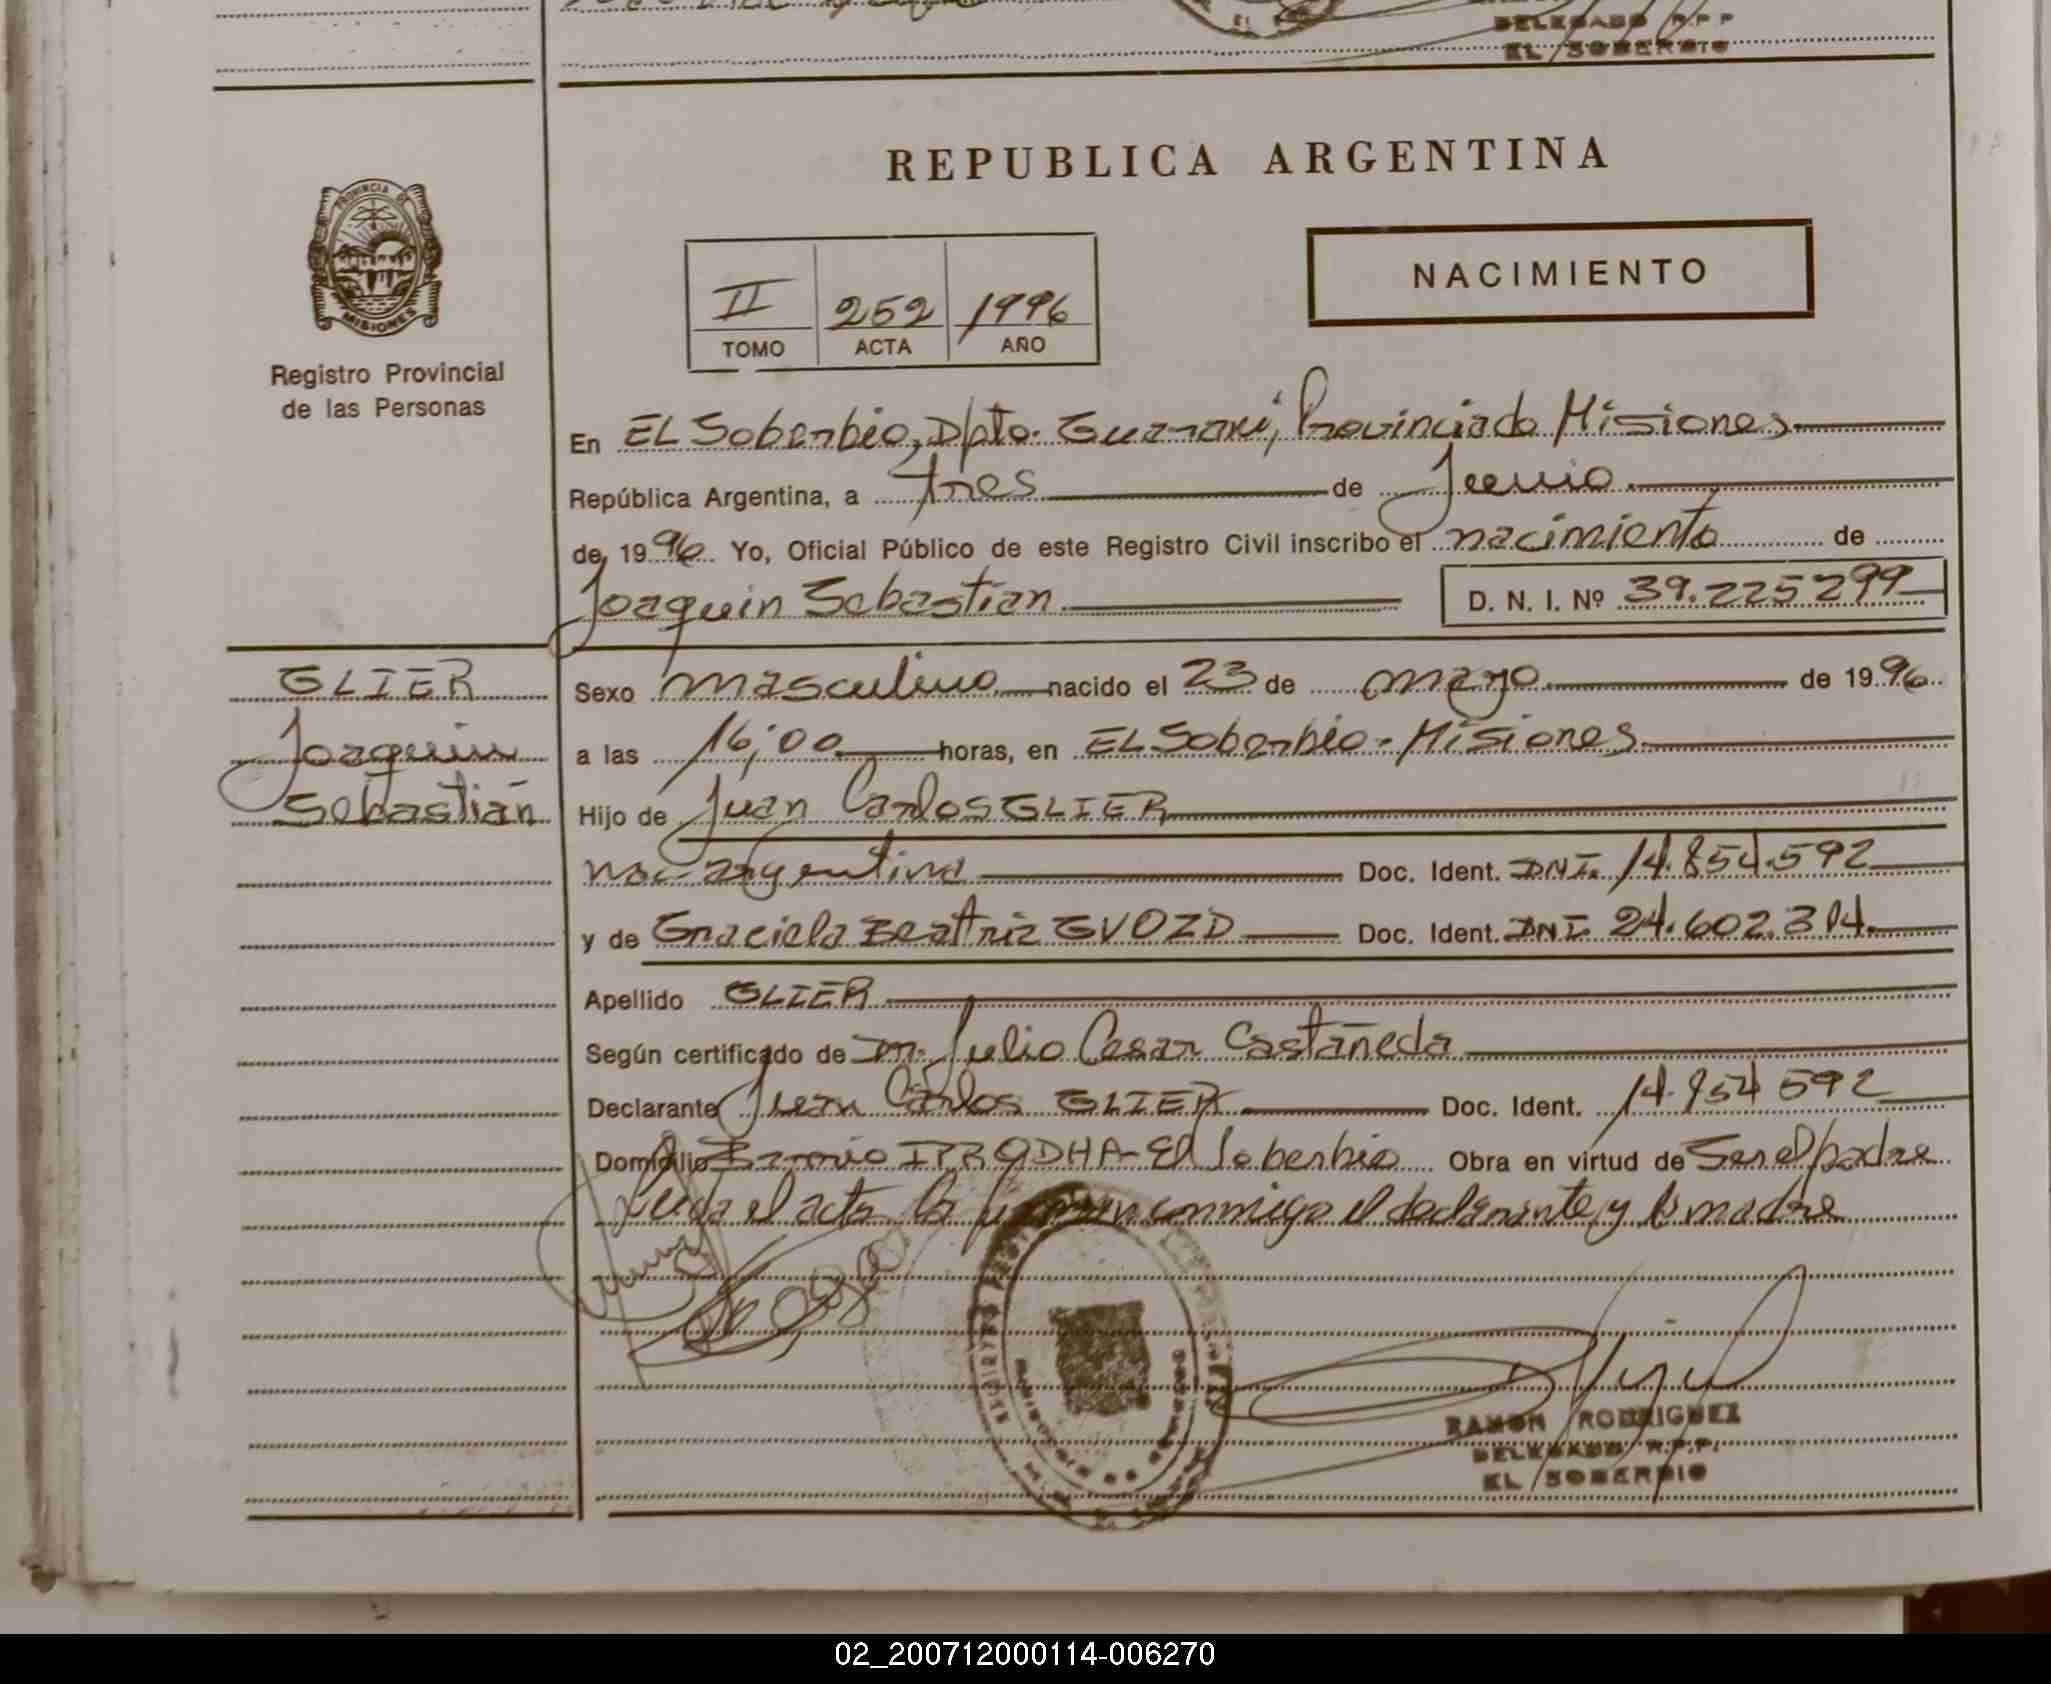 DELEGADO R.P.P
EL SOBERBIO
REPUBLICA ARGENTINA
PROVINCIA DE
MISIONES
Registro Provincial
de las Personas
II 252 1996
TOMO ACTA AÑO
NACIMIENTO
En El Soberbio, Dpto. Guarani, Provincia de Misiones
República Argentina, a tres de Junio
de 1996 Yo, Oficial Público de este Registro Civil inscribo el nacimiento de
Joaquin Sebastian D. N. I. Nº 39.225299
GLIER
Joaquin
Sebastián
Sexo masculino nacido el 23 de mayo de 1996
a las 16,00 horas, en El Soberbio - Misiones
Hijo de Juan Carlos GLIER
nac. argentina Doc. Ident. DNI. 14.854.592
y de Graciela Beatriz GVOZD Doc. Ident. DNI. 24.602.314.
Apellido GLIER
Según certificado de Dr. Julio Cesar Castañeda
Declarante Juan Carlos GLIER Doc. Ident. 14.854 592
Domicilio Barrio IPRODHA - El Soberbio Obra en virtud de Ser el padre
Leida el acta la firman conmigo el declarante y la madre
RAMON RODRIGUEZ
DELEGADO R.P.P.
EL SOBERBIO
02_200712000114-006270